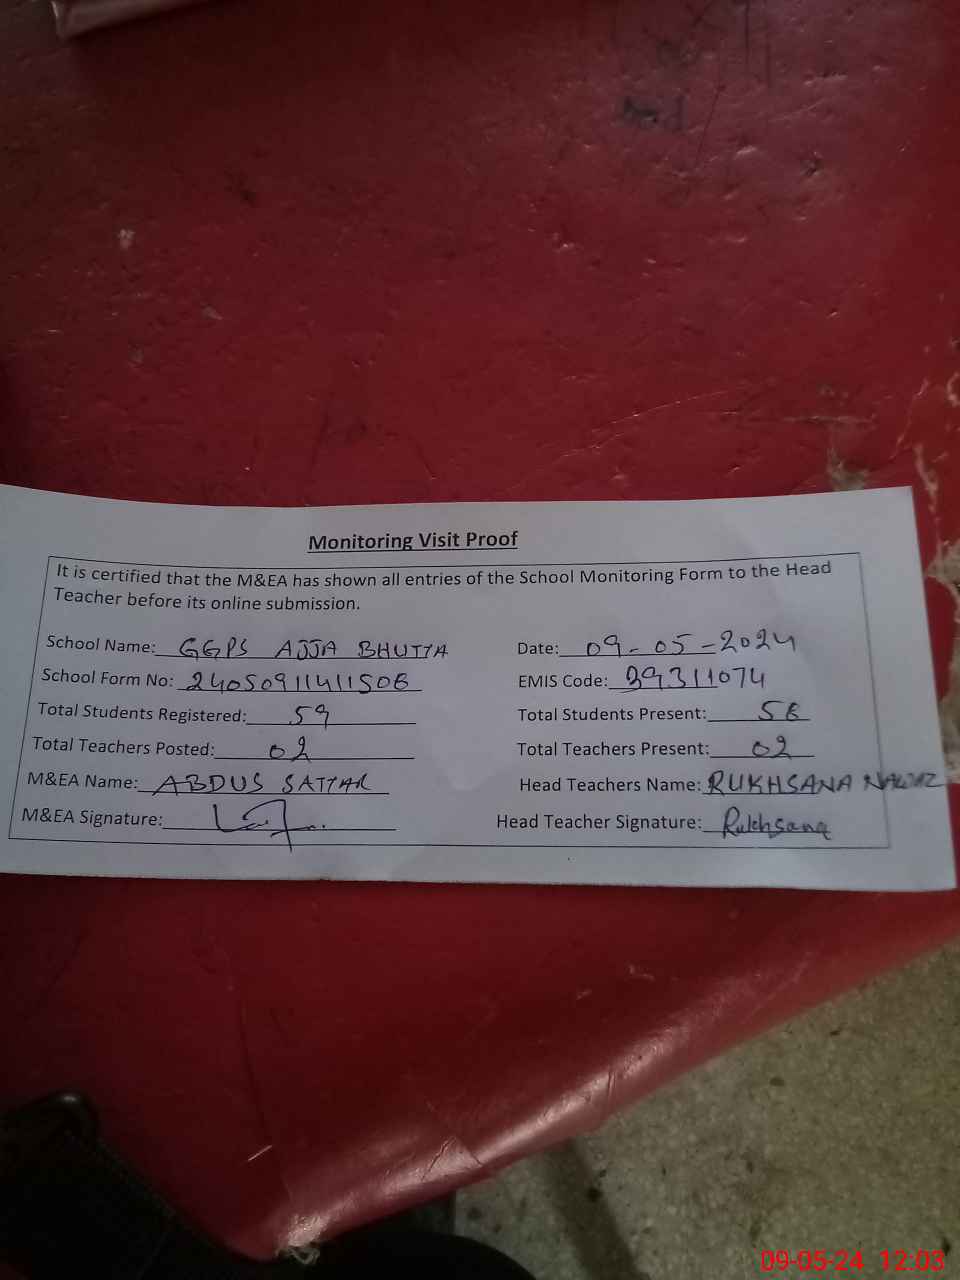 Monitoring Visit Proof
It is certified that the M&EA has shown all entries of the School Monitoring Form to the Head
Teacher before its online submission.
School Name: GGPS AJJA BHUTTA Date: 09-05-2024
School Form No: 24050911411506 EMIS Code: 39311074
Total Students Registered: 59 Total Students Present: 58
Total Teachers Posted: 02 Total Teachers Present: 02
M&EA Name: ABDUS SATTAR Head Teachers Name: RUKHSANA NAWAZ
M&EA Signature: Head Teacher Signature: Rukhsana
09-05-24 12:03